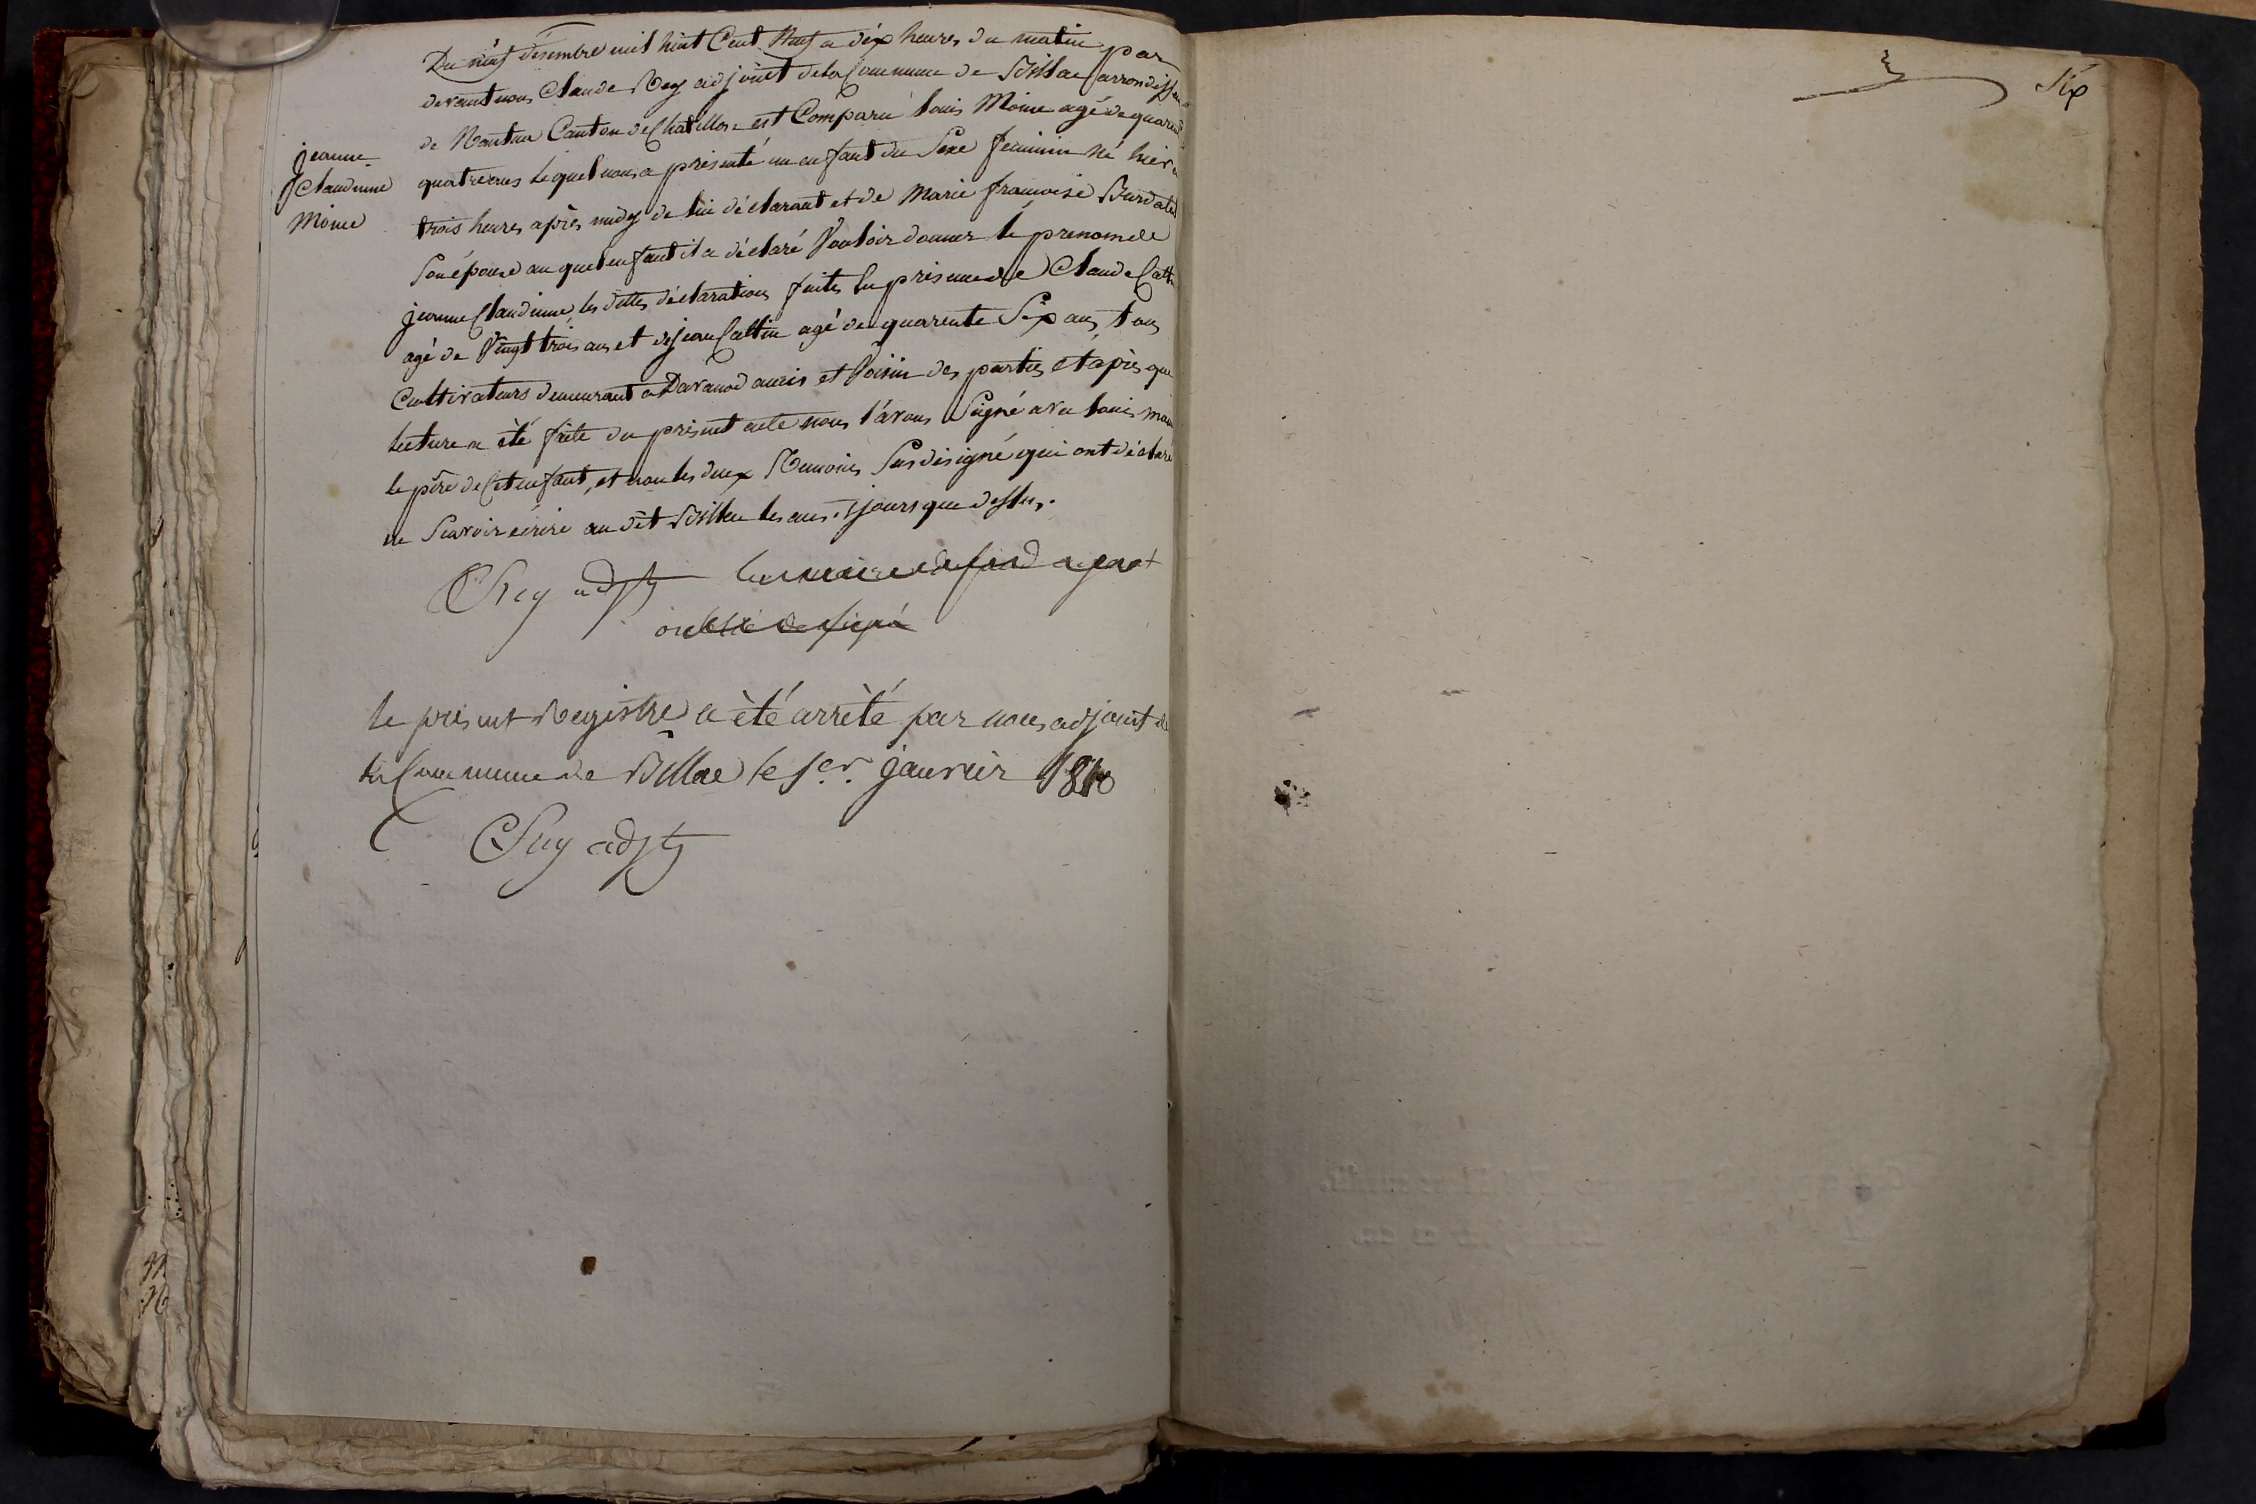 Du neuf désembre mil huit Cent Neuf a dix heures du matin par
devant nous Claude Rey adjoint de la Commune de Billac arrondissem
de Nantua Canton de Chatillon est Comparu louis Moine agé de quarent
jeanne
Claudinne
Moine
quatre ans lequel nous a présenté un enfant du Sexe feminin né hier a
trois heures après midy de lui déclarant et de Marie francoise Burdalet
Son épouse au quel enfant il a déclaré Vouloir donner le prenom de
jeanne Claudinne, les dittes déclarations faites En présence de Claude Catti
agé de Vingt trois ans et de jean Cattin agé de quarente Six ans, tous
Cultivateurs demeurant a Davanod amis et Voisin des parties et après que
lecture a été faite du présent acte nous l'avons Signé avec louis moin
le père de Cet enfant, et non les deux Temoins Susdésigné qui ont déclaré
ne Scavoir écrire au dit Billac les ans et jours que dessus.
CRey adjt
le présent Registre a été arrêté par nous adjoint de
la Commune de Billac le 1er. janvier 1810
CRey adjt